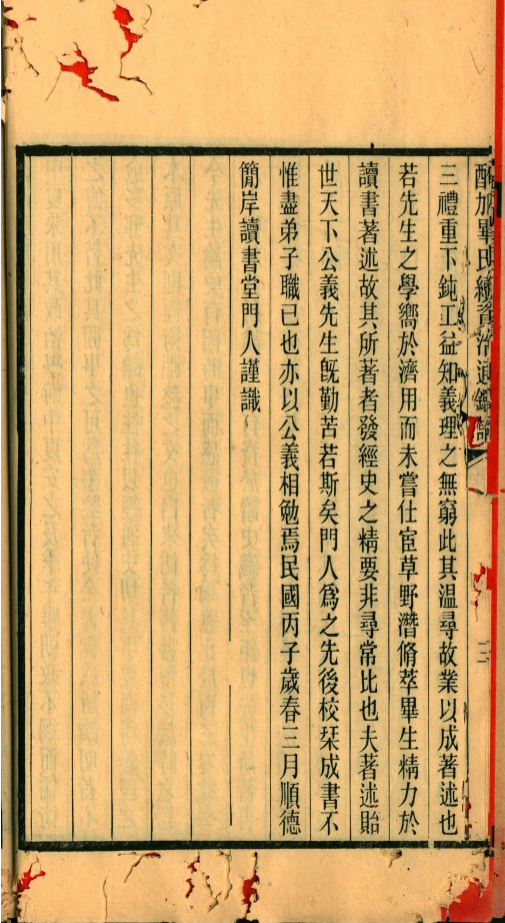 三禮重下鈍工益知義理之無窮此其温尋故業以成著述也
若先生之學嚮於濟用而未嘗仕宦草野潛脩萃畢生精力於
讀書著述故其所著者發經史之精要非尋常比也夫著述貽
世天下公義先生旣勤苦若斯矣門人爲之先後校栞成書不
惟盡弟子職已也亦以公義相勉焉民國丙子歲春三月順德
簡岸讀書堂門人謹識